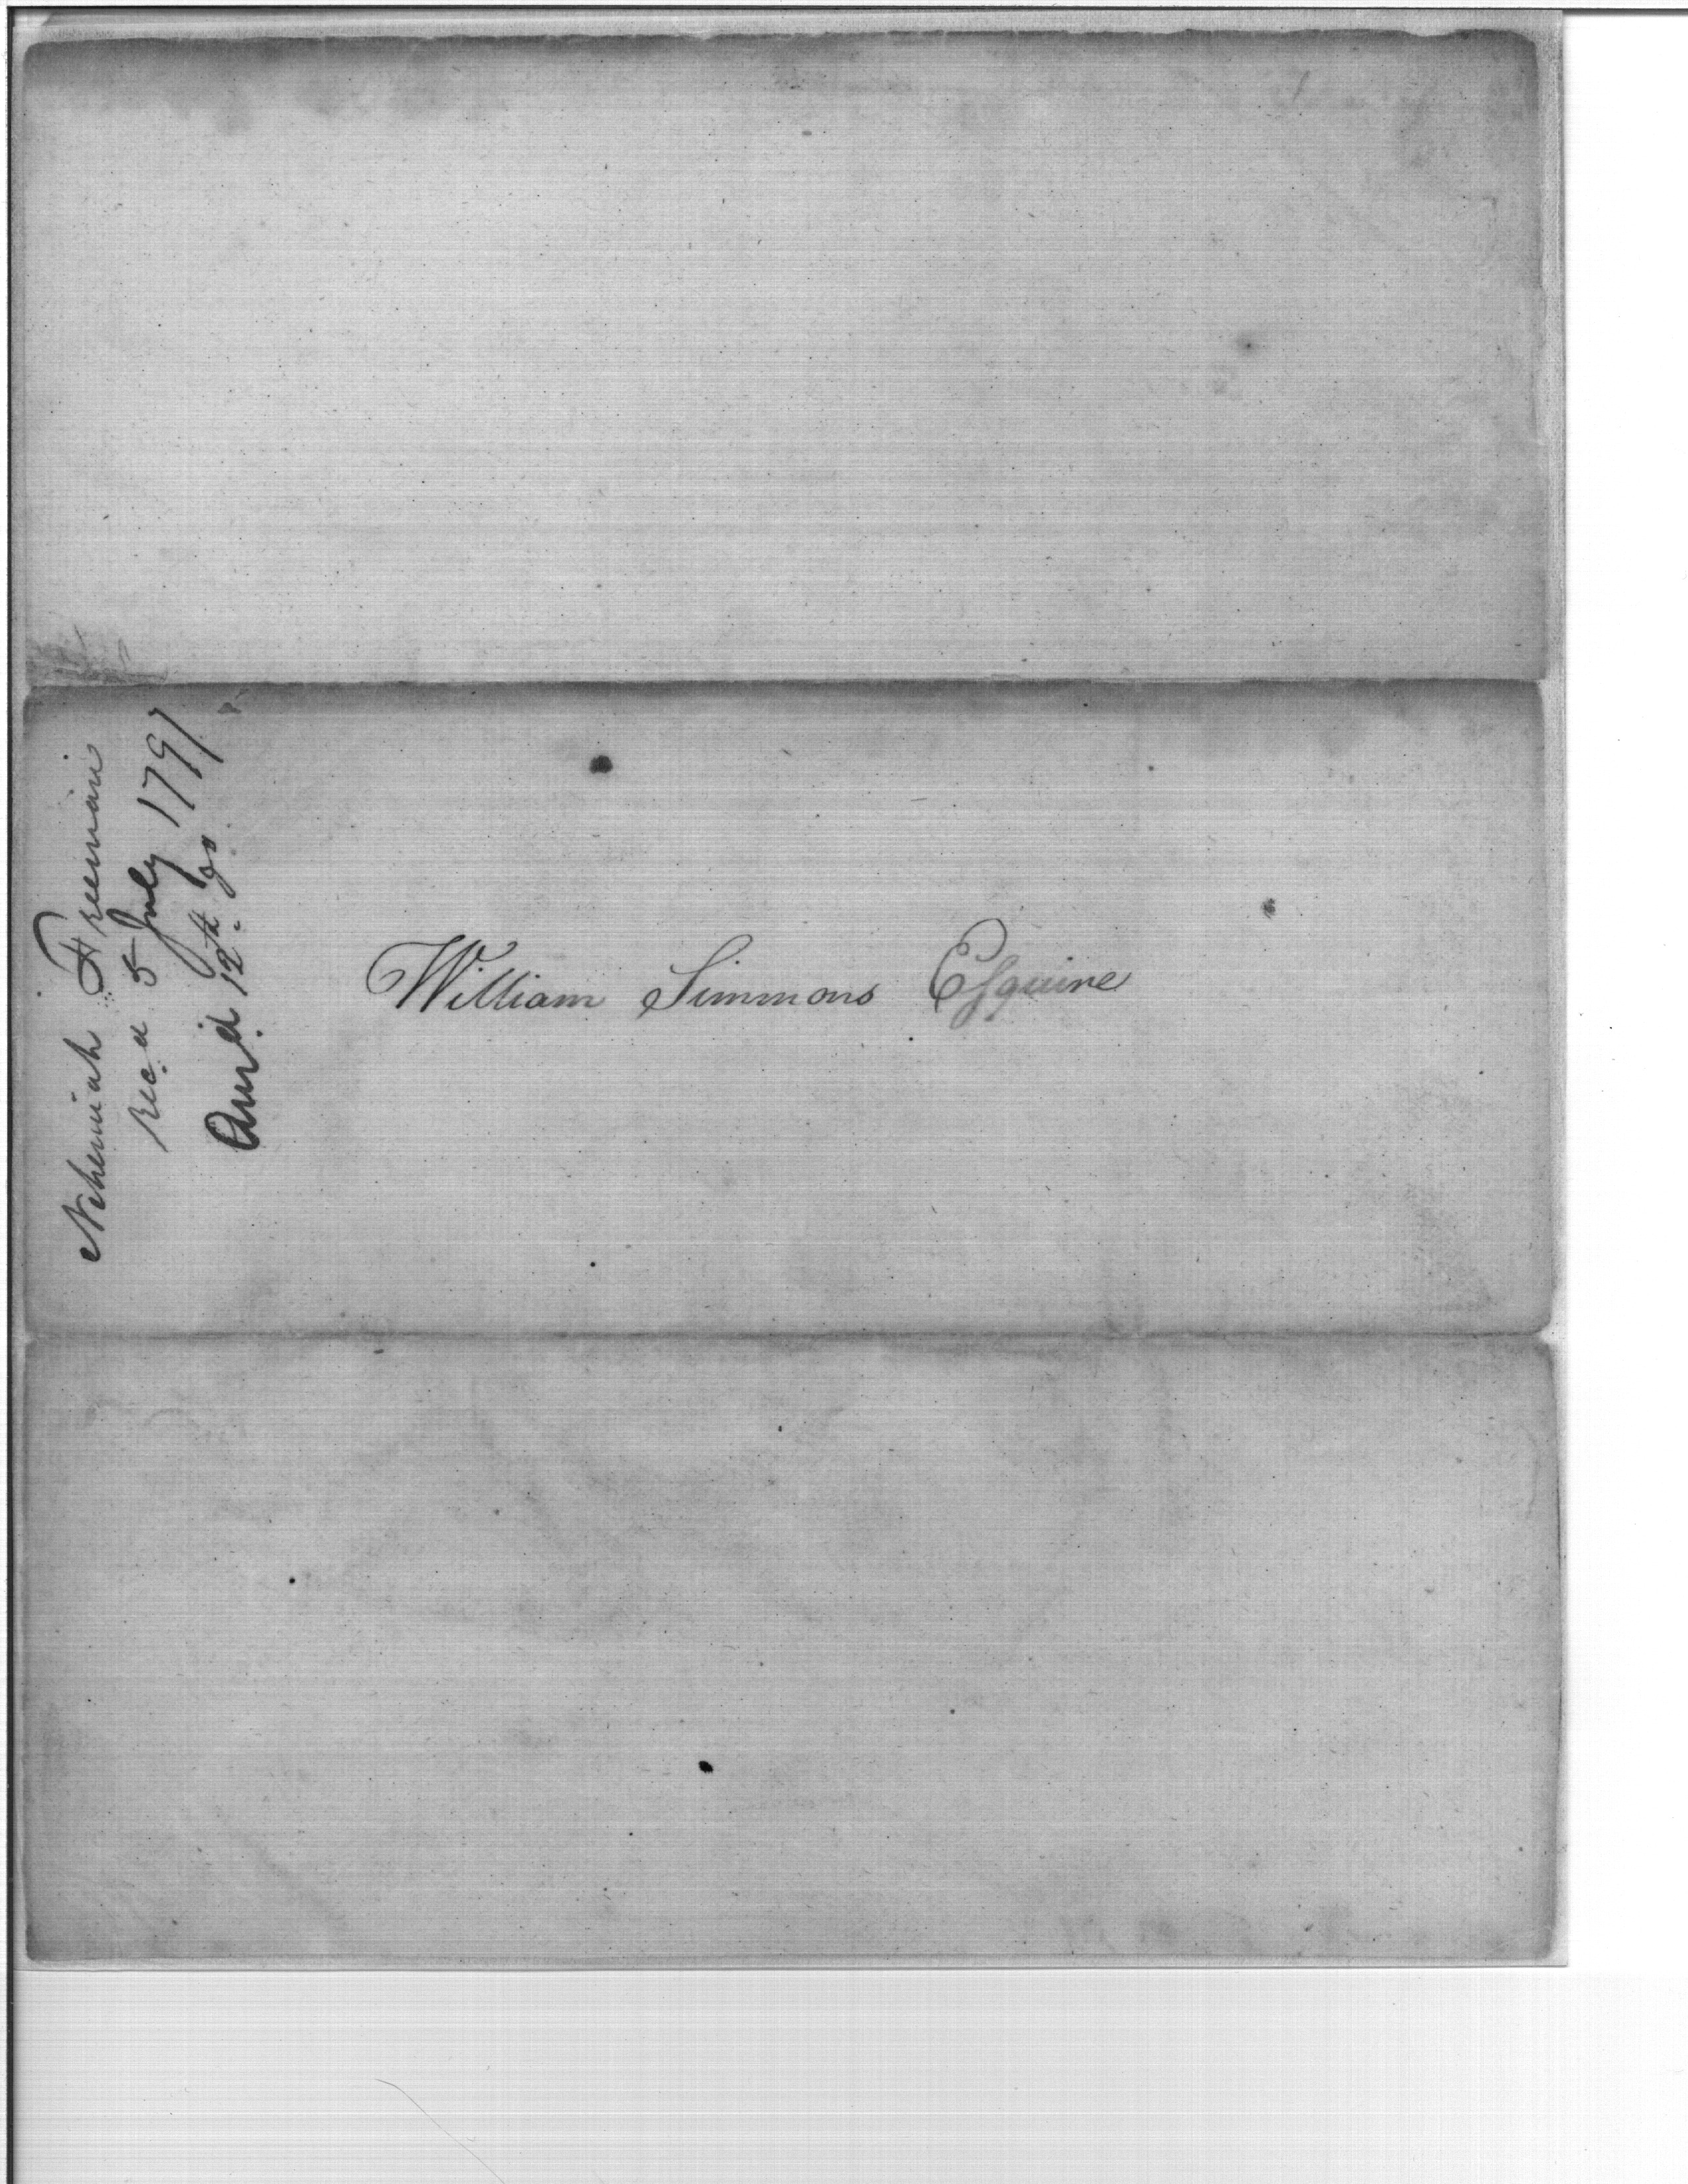 Nehemiah Freeman
rec.d 5 July 1791
Ans.d 12th. do.
William Simmons Esquire